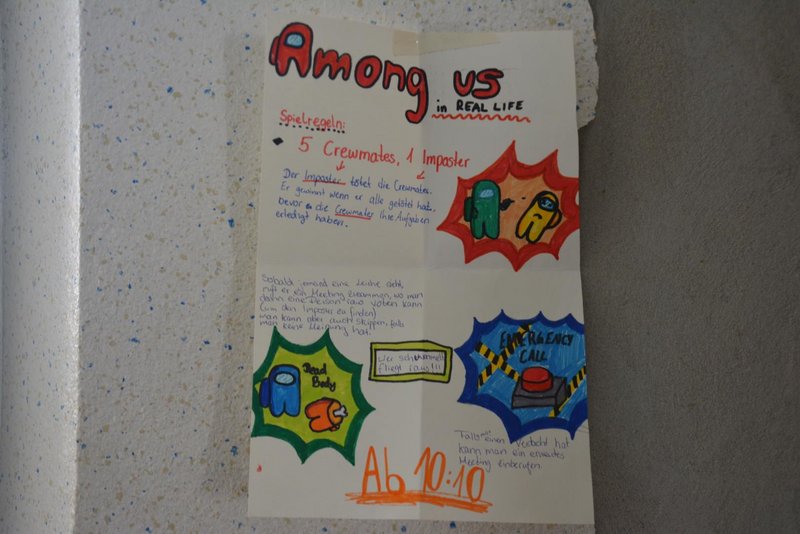 Among us
in REAL LIFE
Spielregeln:
5 Crewmates, 1 Impaster
Der Impaster tötet die Crewmates.
Er gewinnt wenn er alle getötet hat.
bevor die Crewmates ihre Aufgaben
erledigt haben.
Sobald jemand eine Leiche sieht,
ruft er ein Meeting zusammen, wo man
dann eine Person raus voten kann
(um den Imposter zu finden)
man kann aber auch skippen, falls
man keine Meinung hat.
Dead
Body
Wer schummelt
fliegt raus!!!
EMERGENCY
CALL
Falls man einen Verdacht hat
kann man ein erneutes
Meeting einberufen.
Ab 10:10